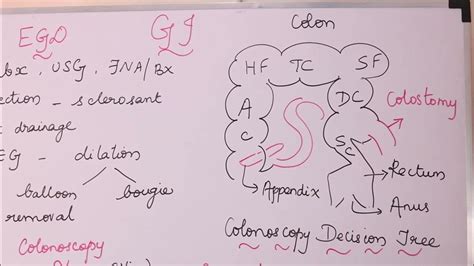 EGD
GI
bx, USG, FNA/Bx
ection - sclerosant
drainage
EG - dilation
balloon bougie
removal
Colonoscopy
Colon
HF TC SF
A DC
C SC
Colostomy
Appendix
Rectum
Anus
Colonoscopy Decision Tree